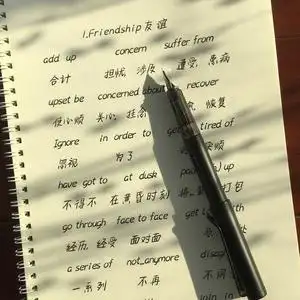 1.Friendship 友谊
add up concern suffer from
合计 担忧, 涉及 遭受, 患病
upset be concerned about recover
关心, 挂念 恢复
Ignore in order to get tired of
忽视 为了
have got to at dusk up
不得不 在黄昏时刻 打包
go through face to face get
经历, 经受 面对面
a series of not_anymore
一系列 不再 不同
join in